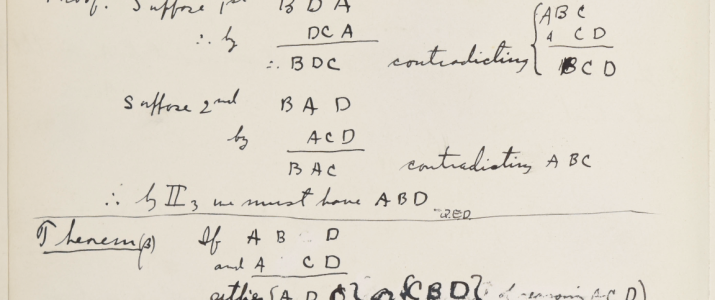 Proof. Suppose 1st B D A { A B C
∴ by D C A A C D
∴ B D C contradicting B C D
Suppose 2nd B A D
by A C D
B A C contradicting A B C
∴ by II3 we must have A B D
Q.E.D.
Theorem (β) If A B D
and A C D
either {A D C} or {C B D}